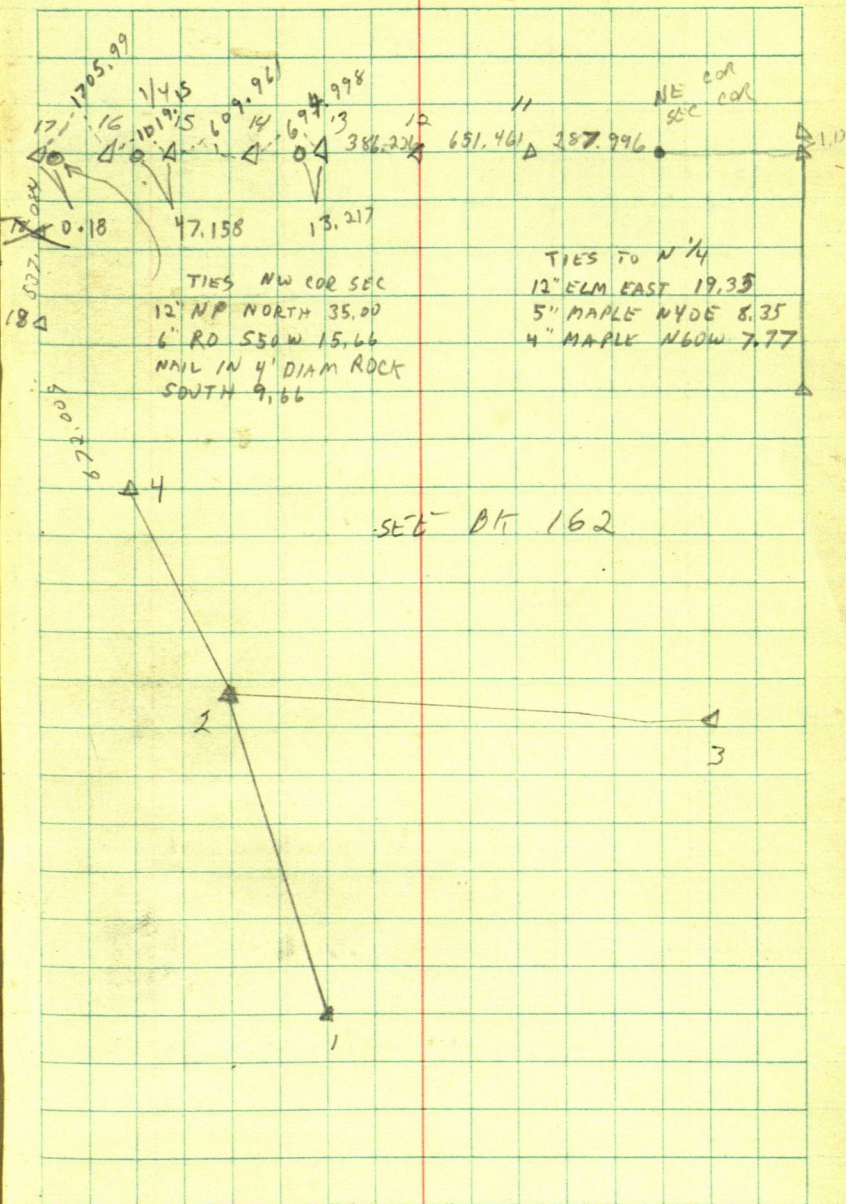 1705.99
1/4
1019.15
609.961
694.998
NE COR
SEC COR
17
16
15
14
13
12
11
386.226
651.461
287.996
0.18
47.158
13.217
TIES NW COR SEC
12" NP NORTH 35.00
6" RO S50W 15.66
NAIL IN 4' DIAM ROCK
SOUTH 9.66
TIES TO N 1/4
12" ELM EAST 19.35
5" MAPLE N40E 8.35
4" MAPLE N60W 7.77
18
672.009
4
SEE BK 162
2
3
1